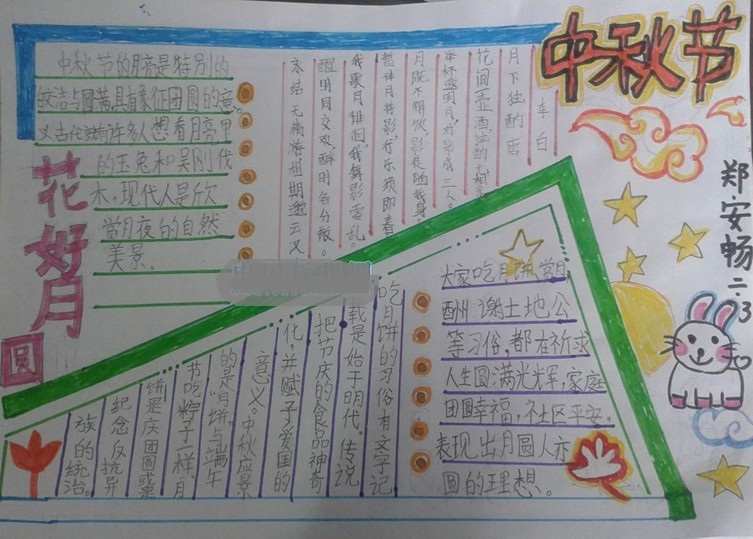 中秋节
郑安畅 二.3
花好月圆
中秋节的月亮是特别的
皎洁与圆满,具有象征团圆的意
义古代就有许多人想看月亮里
的玉兔和吴刚伐
木,现代人是欣
赏月夜的自然
美景。
月下独酌
李白
花间一壶酒
举杯邀明月,对影成三人。
月既不解饮,影徒随我身
暂伴月将影,行乐须即春
我歌月徘徊,我舞影零乱。
醒时同交欢,醉时各分散。
永结无情游,相期邈云汉
大家吃月饼,赏月
酬谢土地公
等习俗,都在祈求
人生圆满光辉,家庭
团圆幸福,社区平安,
表现出月圆人亦
圆的理想。
吃月饼的习俗,有文字记
载是始于明代。传说
把节庆的食品神奇
化,并赋予爱国的
意义。中秋应景
的是"月饼"与端午
节吃粽子一样,月
饼是庆团圆或
纪念反抗异
族的统治。